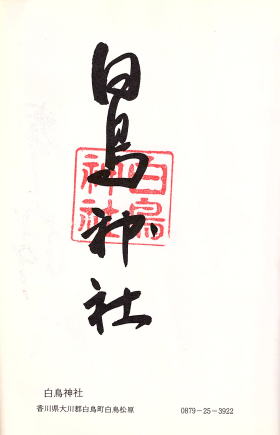 白鳥神社
白鳥神社
白鳥神社
香川県大川郡白鳥町白鳥松原 0879-25-3922